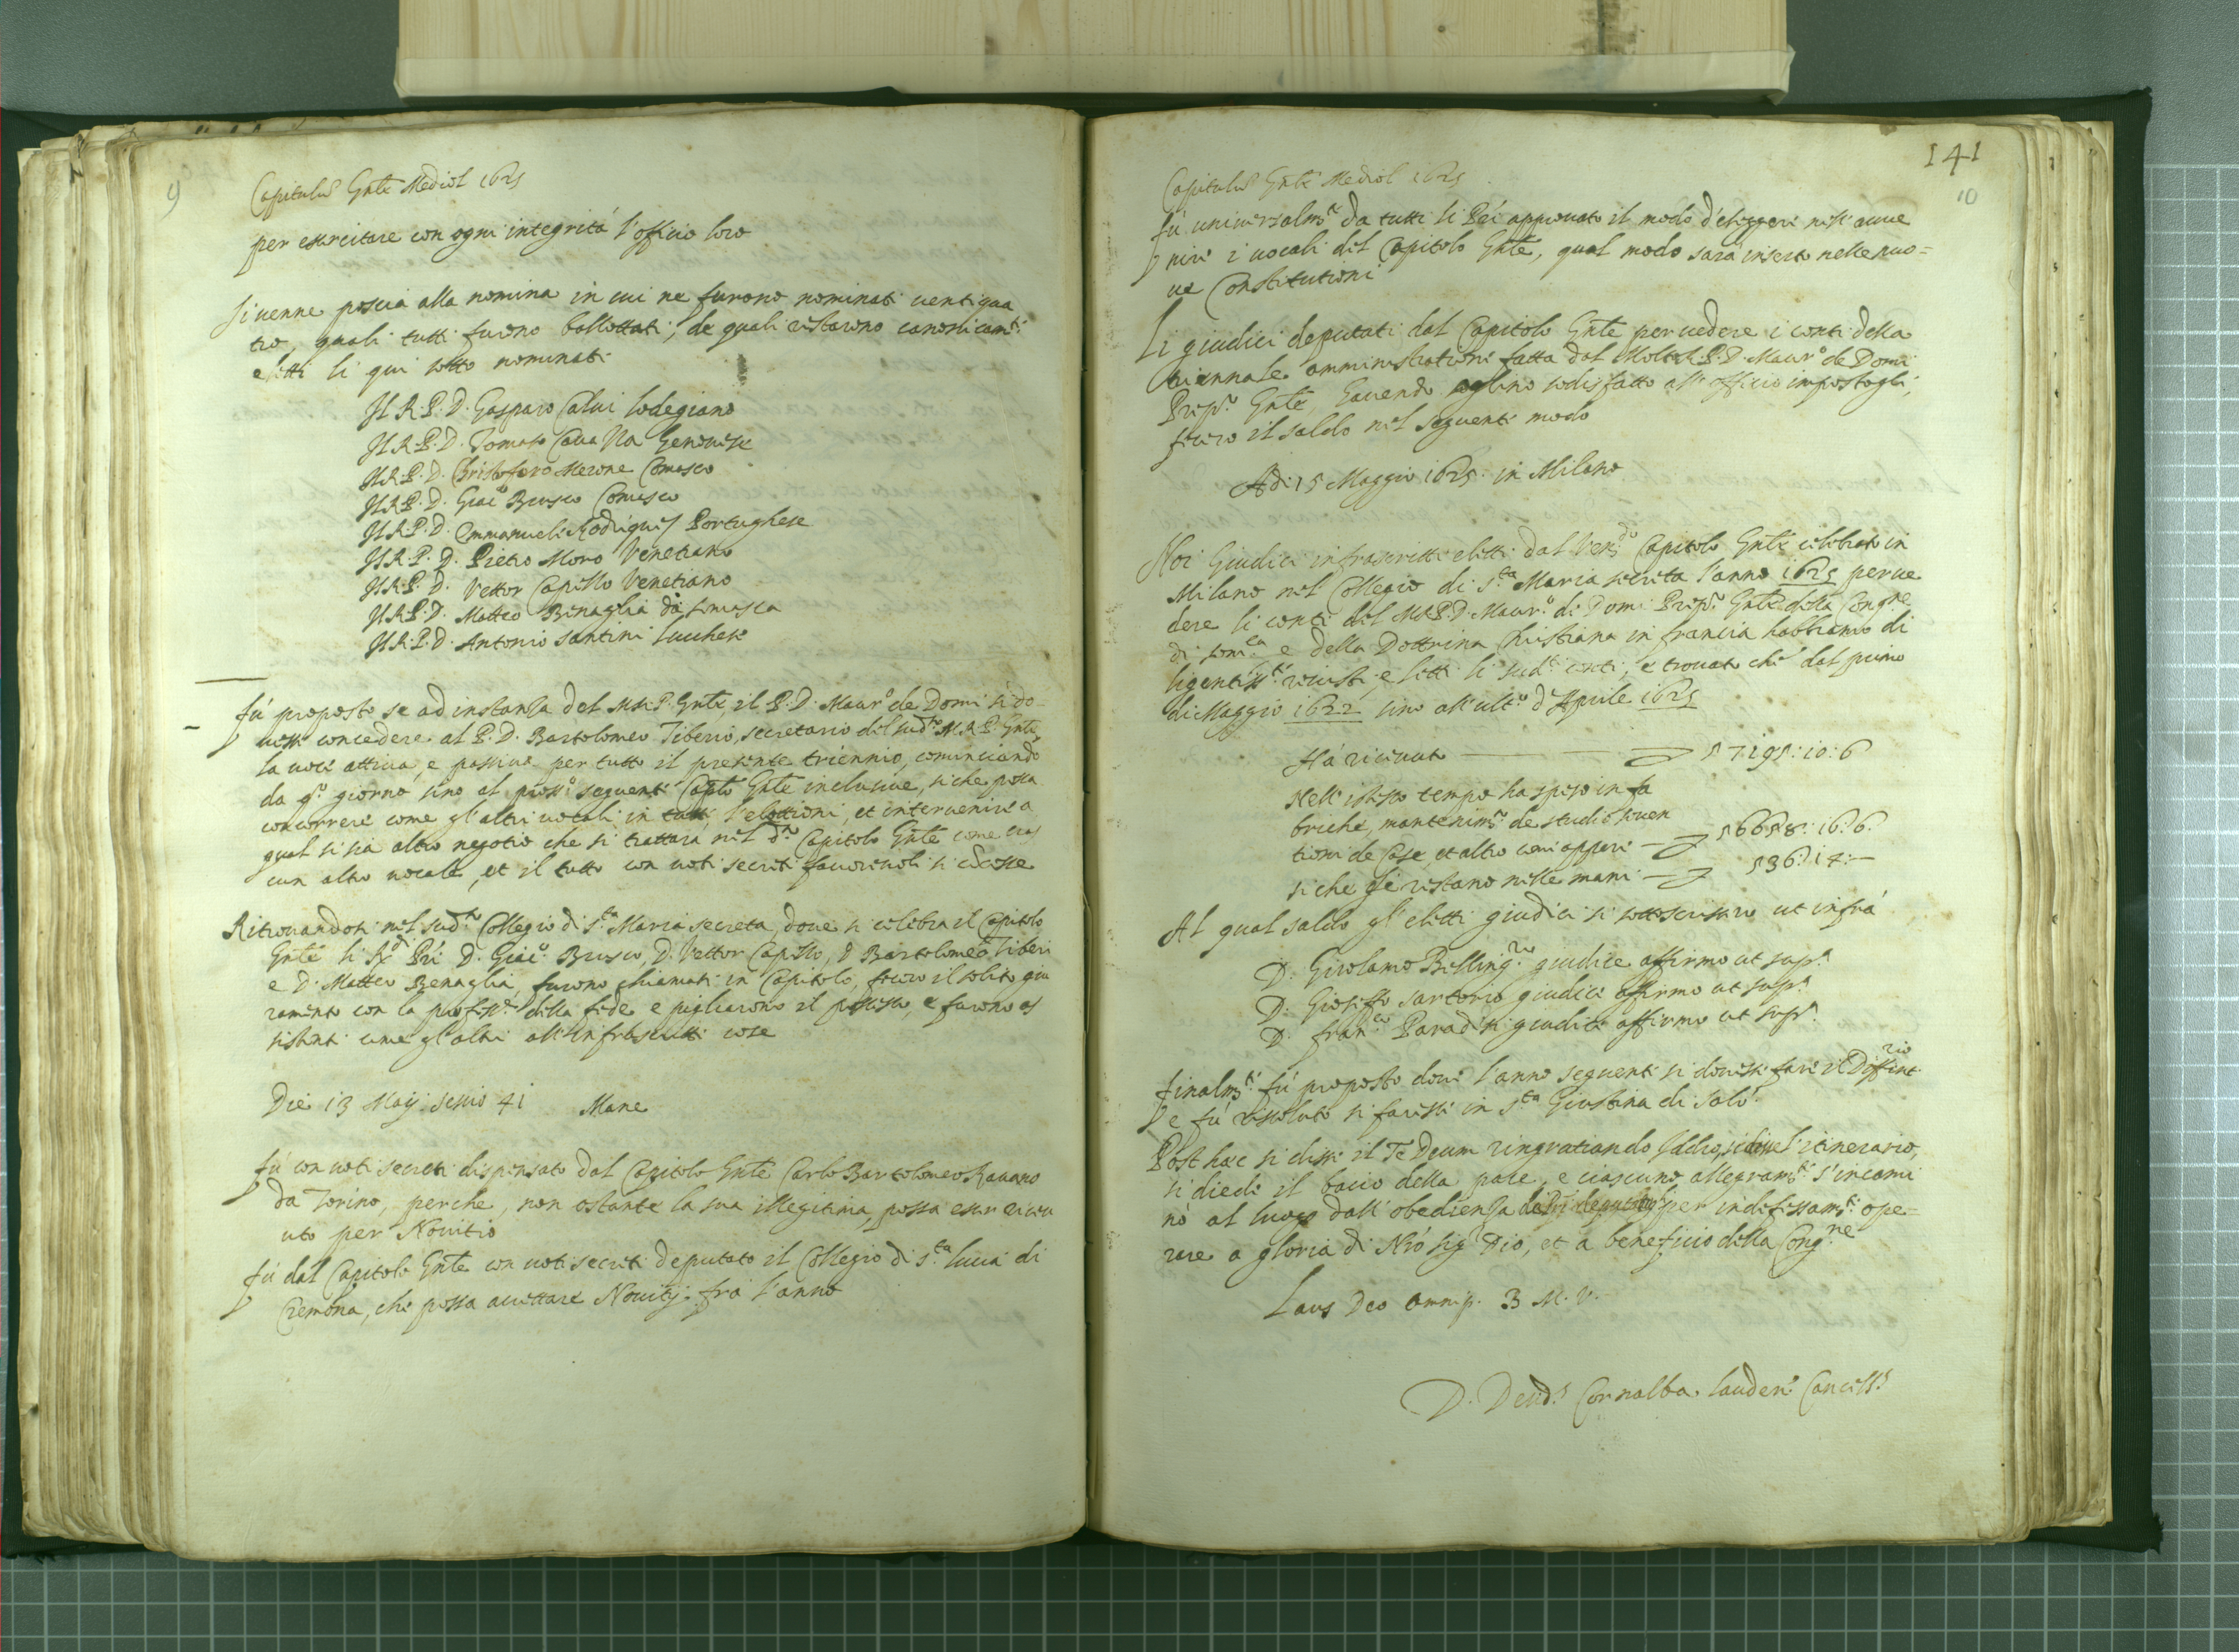 9
Capitulũ Gñle Mediol 1625
per essercitare con ogni integrità l'officio loro
Si venne poscia alla nomina in cui ne furono nominati uentiqua
tro, quali tutti furono ballottati, de quali restarono canonicam.te
eletti li qui sotto nominati
Il R.P.D. Gasparo Calui lodegiano
Il R.P.D. Tomaso Caua Na Genouese
Il R.P.D. Christoforo Merone Comasco
Il R.P.D. Giac.o Brusco Comasco
Il R.P.D. Emmanuele Rodriques Portughese
Il R.P.D. Pietro Moro Venetiano
Il R.P.D. Vettor Capello Venetiano
Il R.P.D. Matteo Benaglia da somasca
Il R.P.D. Antonio santini lucchese
fù proposto se ad instanza del M.R.P. Gñle, il P.D. Maur.o de Domi si do
uesse concedere al P.D. Bartolomeo Tiberio, secretario del sud.to M.R.P. Gñle
la uoce attiua, e passiua per tutto il presente triennio, cominciando
da q.o giorno sino al pross.o seguente Cap.lo Gñle inclusiue, siche possa
concorrere come gl'altri uocali in tutte l'elettioni, et interuenire a
qual si sia altro negotio che si trattarà nel d.o Capitolo Gñle come cias
cun altro uocale, et il tutto con uoti secreti fauoreuoli si
Ritrouandosi nel sud.o Collegio di S.ta Maria secreta, doue si celebra il Capitolo
Gñle li R.di Pri D. Giac.o Brusco, D. Vettor Capello, D Bartolomeo Tiberi
e D. Matteo Benaglia, furono chiamati in Capitolo, fecero il solito giu
ramento con la profess.e della fede e pigliarono il possesso, e furono as
sistenti come gl'altri all'infrascritte cose
Die 13 Maij sessio 41 Mane
fù con uoti secreti dispensato dal Capitolo Gñle Carlo Bartolomeo Rauano
da Torino, perche, non ostante la sua illegitima, possa esser riceu
uto per Nouitio
fù dal Capitolo Gñle con uoti secreti deputato il Collegio di S.ta lucia di
Cremona, che possa accettare Nouitij frà l'anno
141
10
Capitulũ Gñle Mediol 1625
fù uniuersalm.te da tutti li Pri approuato il modo d'eleggere nell'auue
nire i uocali del Capitolo Gñle, qual modo sarà inserto nelle nuo=
ue Constitutioni
Li giudici deputati dal Capitolo Gñle per uedere i conti della
triennale amministratione fatta dal Molto R.P.D. Maur.o de Domi
Prep.o Gñle, hauendo eglino sodisfatto all'officio impostogli,
fecero il saldo nel seguente modo
Adi 15 Maggio 1625 in Milano
Noi Giudici infrascritti eletti dal Ven.do Capitolo Gñle celebrato in
Milano nel Collegio di S.ta Maria secreta l'anno 1625 per ue
dere li conti del M.R.P.D. Maur.o de Domi Prep.o Gñle della Cong.ne
di som.ca e della Dottrina Christiana in francia habbiamo di
ligentiss.te reuisti, e letti li sud.ti conti, e trouato che dal primo
di Maggio 1622 sino all'ult.o d'Aprile 1625
Hà riceuuto 57195:10:6
Nell'istesso tempo ha speso in fa
briche, mantenim.to de studii souen
tioni de Case, et altro come appare 56658:16:6
siche gle restano nelle mani 536:14:-
Al qual saldo gl'eletti giudici si sottoscrissero ut infrà
D. Girolamo Belling.rio giudice affirmo ut sup.a
D. Gioseffo sartorio giudice affirmo ut sup.a
D. fran.co Paradisi giudice affirmo ut sup.a
finalm.te fù proposto doue l'anno seguente si douesse fare il Diffint.rio
e fù rissoluto si facesse in S.ta Giustina di Salò
Post hæc si disse il Te Deum ringratiando Iddio, si disse l'itinerario,
si diede il bacio della pace, e ciascuno allegram.te s'incami
nò al luogo dall'obedienza per indefessam.te ope=
rare a gloria di Nrõ sig.r Dio, et a beneficio della Cong.ne
Laus Deo omnip. B M.V.
D. Deud.s Cornalba lauden.s Cancell.s